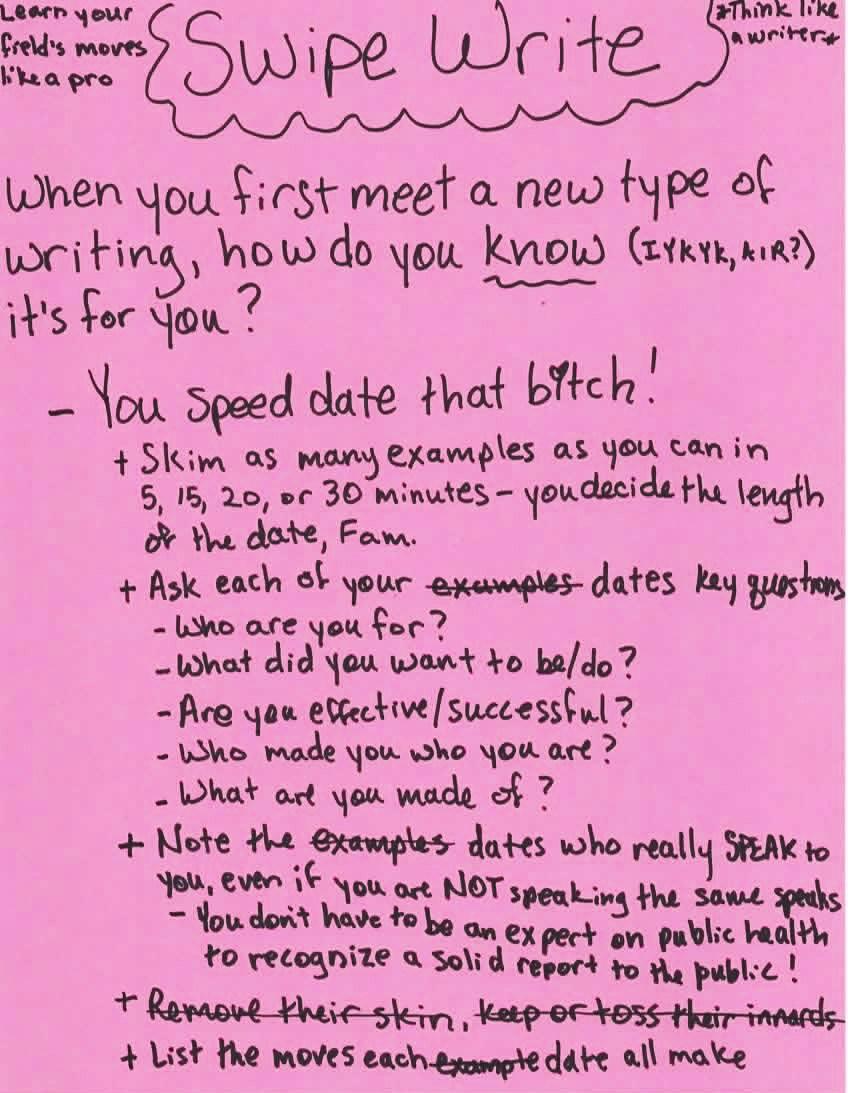 Learn your
field's moves
like a pro
Swipe Write
*Think like
a writer*
When you first meet a new type of
writing, how do you know (IYKYK, AIR?)
it's for you?
- You speed date that bitch!
+ Skim as many examples as you can in
5, 15, 20, or 30 minutes - you decide the length
of the date, Fam.
+ Ask each of your examples dates key questions
- Who are you for?
- What did you want to be/do?
- Are you effective/successful?
- Who made you who you are?
- What are you made of?
+ Note the examples dates who really SPEAK to
you, even if you are NOT speaking the same speaks
- You don't have to be an expert on public health
to recognize a solid report to the public!
+ Remove their skin, keep or toss their innards
+ List the moves each example date all make